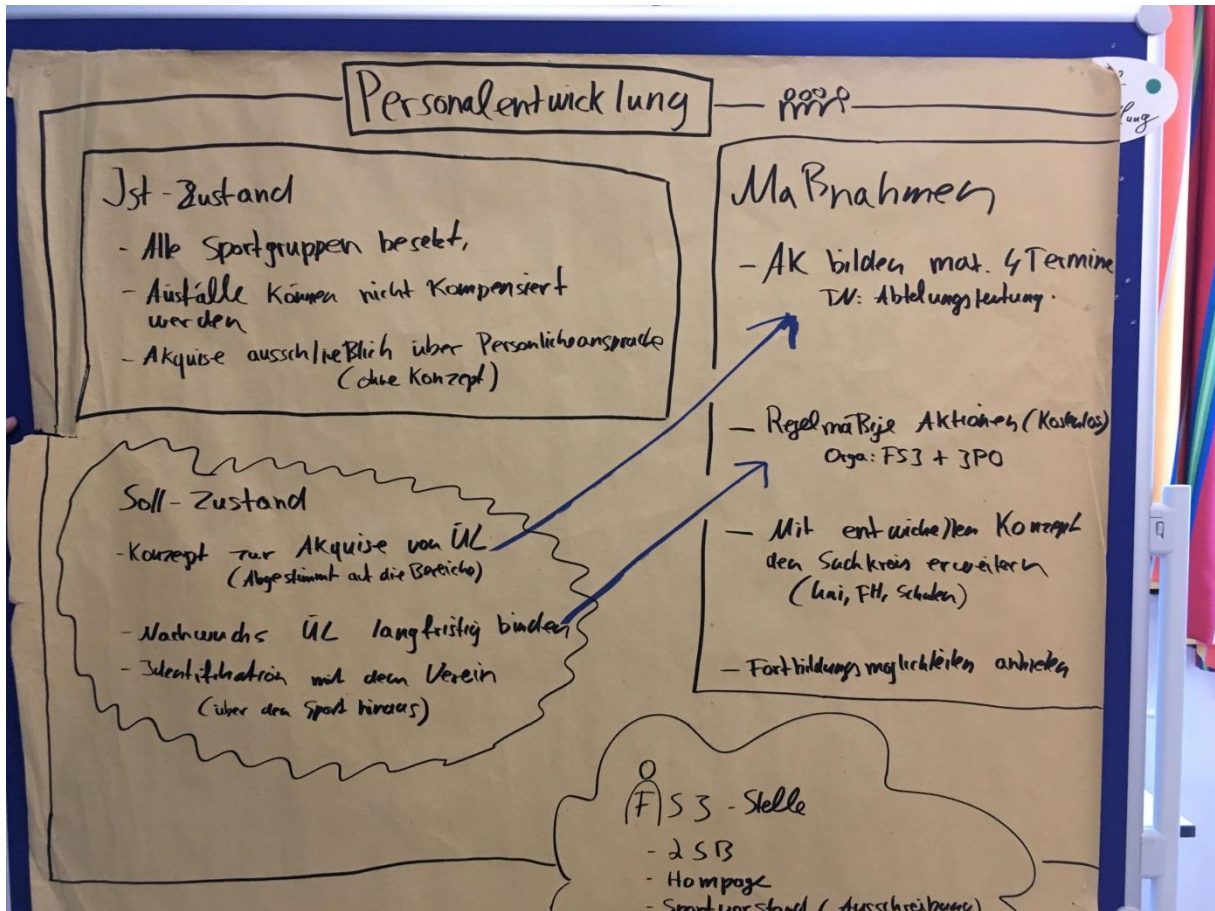 Personalentwicklung
Ist-Zustand
- Alle Sportgruppen besetzt,
- Ausfälle können nicht kompensiert
werden
- Akquise ausschließlich über Persönlicheansprache
(ohne Konzept)
Soll-Zustand
- Konzept zur Akquise von ÜL
(Abgestimmt auf die Bereiche)
- Nachwuchs ÜL langfristig binden
- Identifikation mit dem Verein
(über den Sport hinaus)
Maßnahmen
- AK bilden max. 4 Termine
TN: Abteilungsleitung.
- Regelmäßige Aktionen (Kostenlos)
Orga: FSJ +
- Mit entwickelten Konzept
den Suchkreis erweitern
(Uni, FH, Schulen)
- Fortbildungsmöglichkeiten anbieten
FSJ-Stelle
- LSB
- Hompage
- Sportvorstand (Ausschreibung)
lung